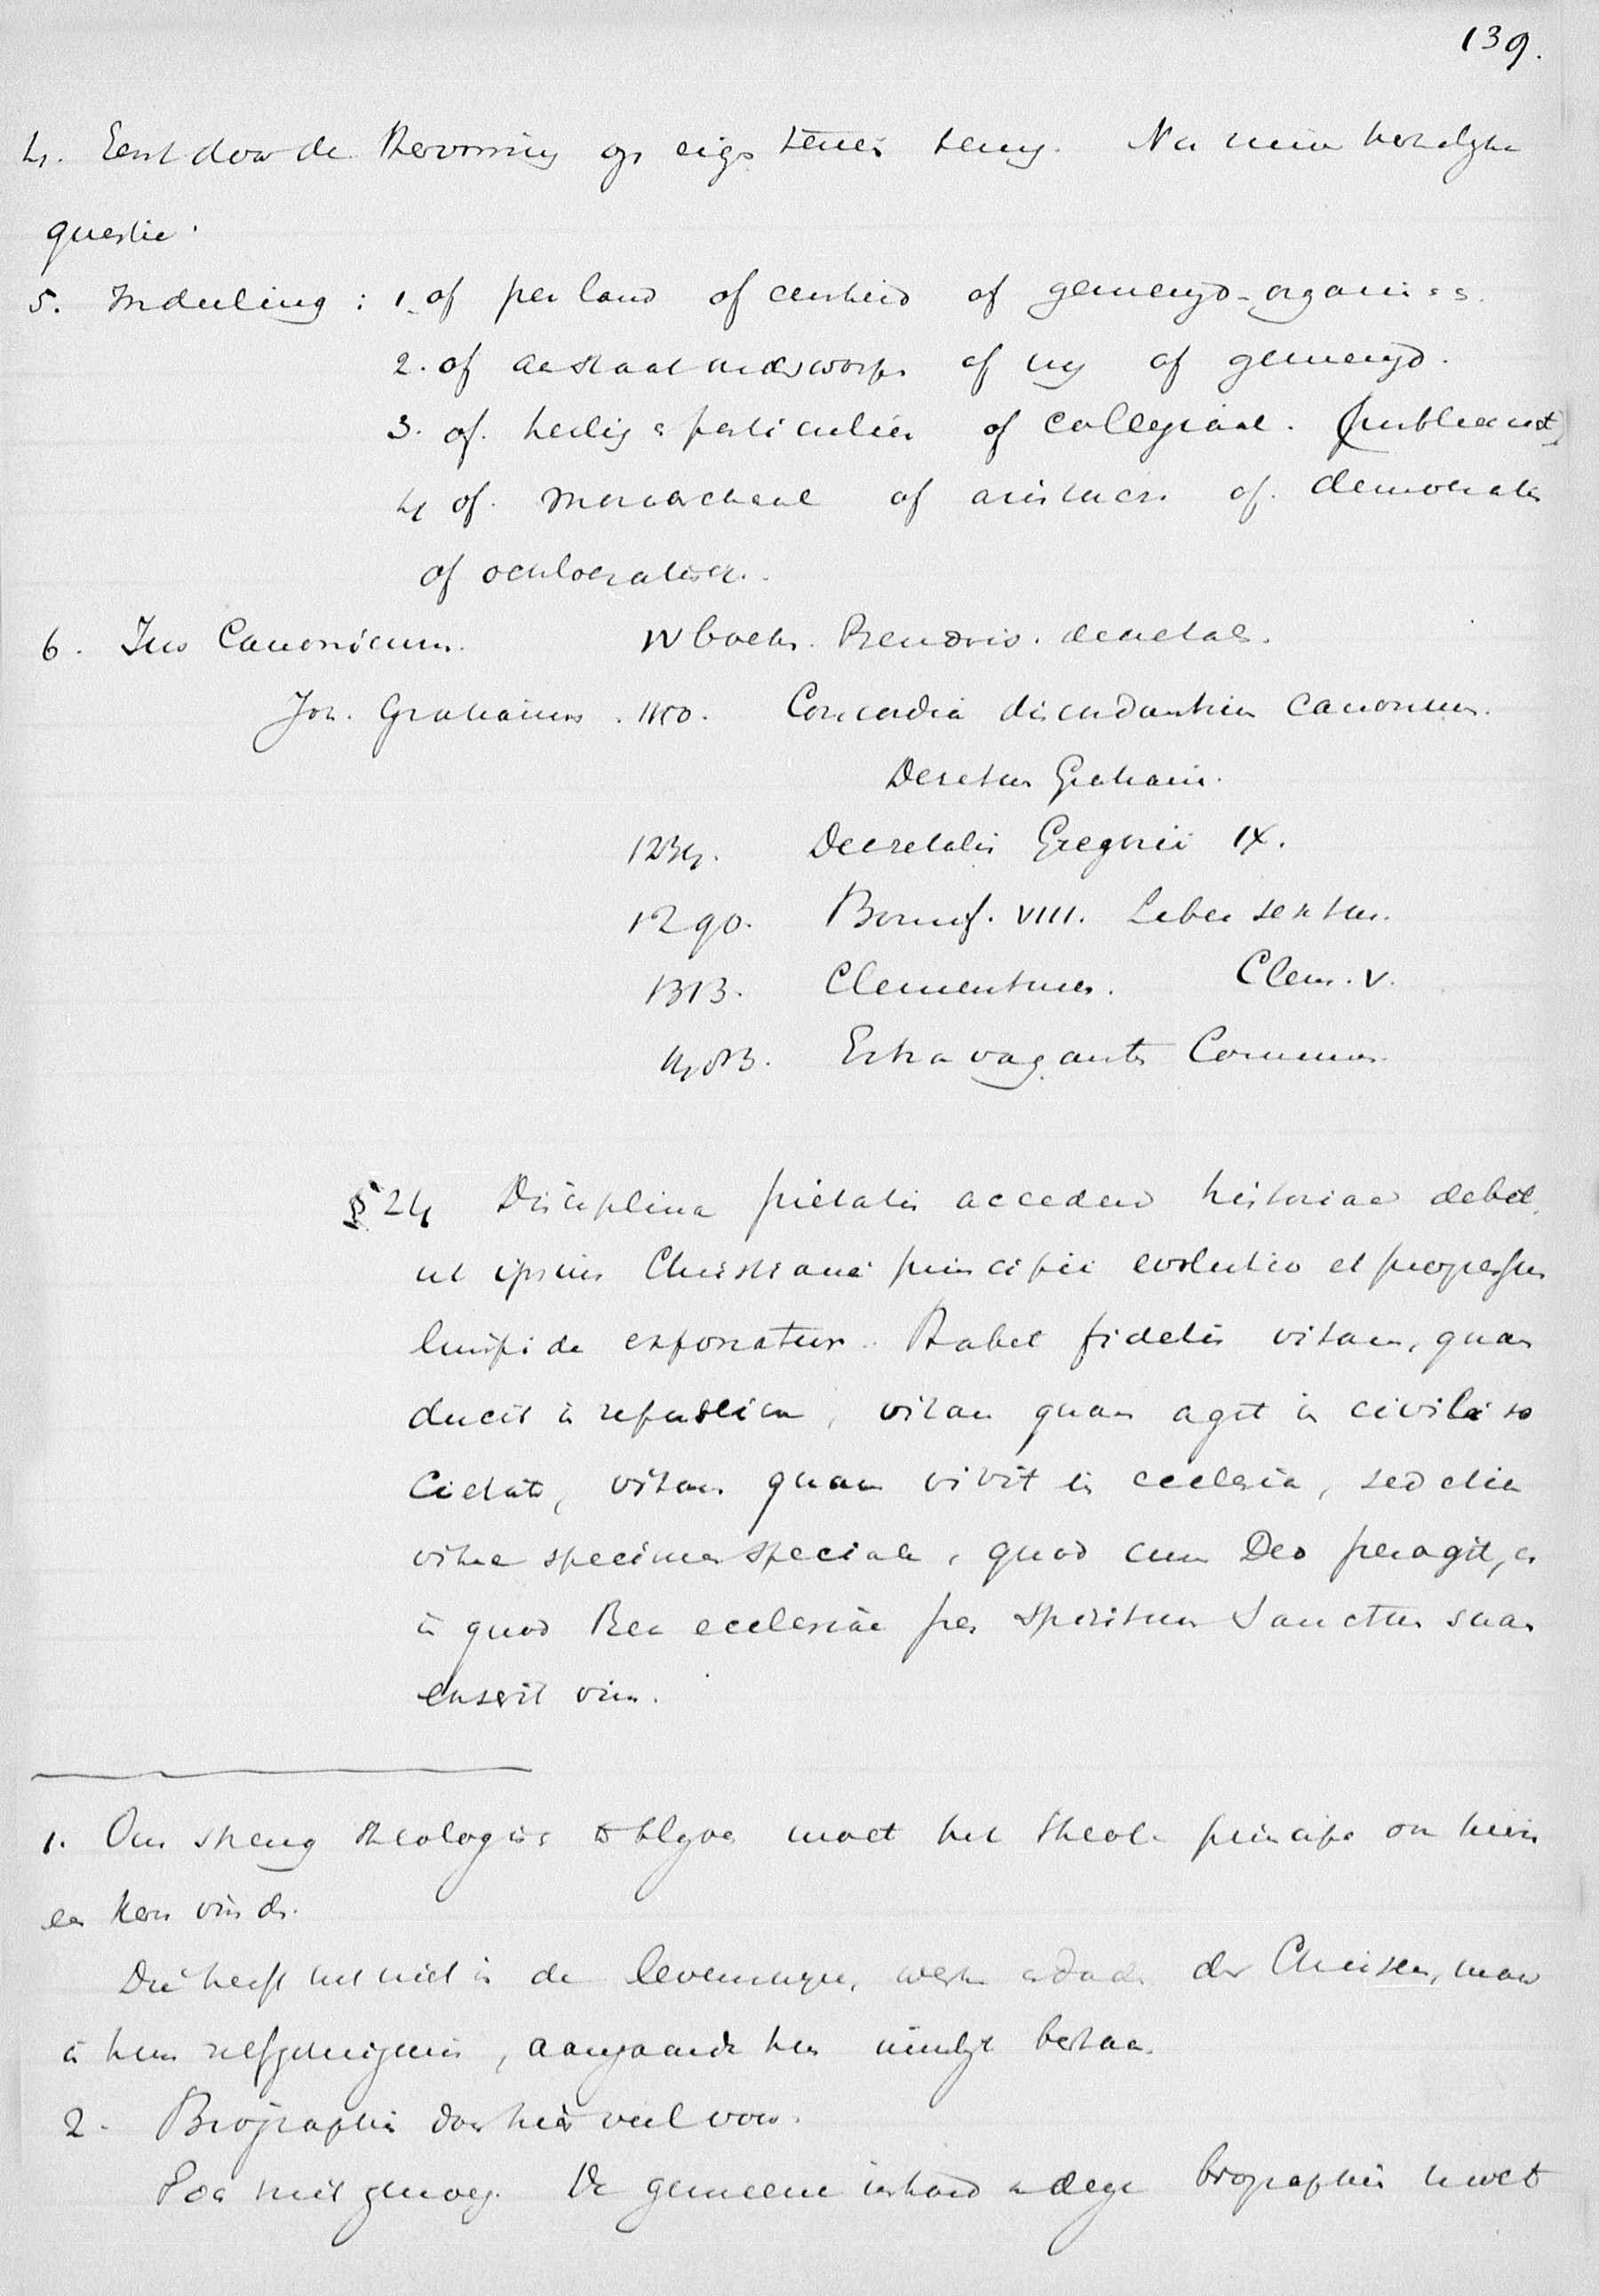 139.
4. Eerst door de Hervorming op eigen terrein terug. Nu weer kerkelijke
questie.
5. Indeeling: 1. of per land of eenheid of gemengd-organi
2. of de staat onderworpen of vrij of gemengd.
3. of heilig particulier of collegiaal. (publiek
4 of monarchaal of aristocr. of democratis
of ochlocratisch.
6. Jus Canonicum. W boek. Pseudois. decretal.
Joh. Gratianus. 1150. Concordia discordantium canonum.
Decretum Gratiani.
1234. Decretalis Gregorii IX.
1290. Bonif. VIII. Liber sextus.
1313. Clementines. Clem. V.
Extravagantes Communes
§ 24 Disciplina pietatis accedere historiae debet,
ut ipsius Christiani principii evolutio et progressus
limpide exponatur. Habet fidelis vitam, quam
ducit in republica, vitam quam agit in civili so
cietate, vitam quam vivit in ecclesia, sed etiam
vitae specimen speciale, quod cum Deo peragit, et
in quod Rex ecclesiae per Spiritum Sanctum suam
exserit vim.
1. Om streng theologisch te blijven moet het theol. principe ook hierin
een kern vinden.
Die heeft het niet in de levenswijze, werken daden der Christen, maar
in hun zelfgetuigenis, aangaande hun innerlijk bestaan.
2. Biographie daar hier veel voor.
Toch niet genoeg. De gemeene inhoud dezer biographiën moet